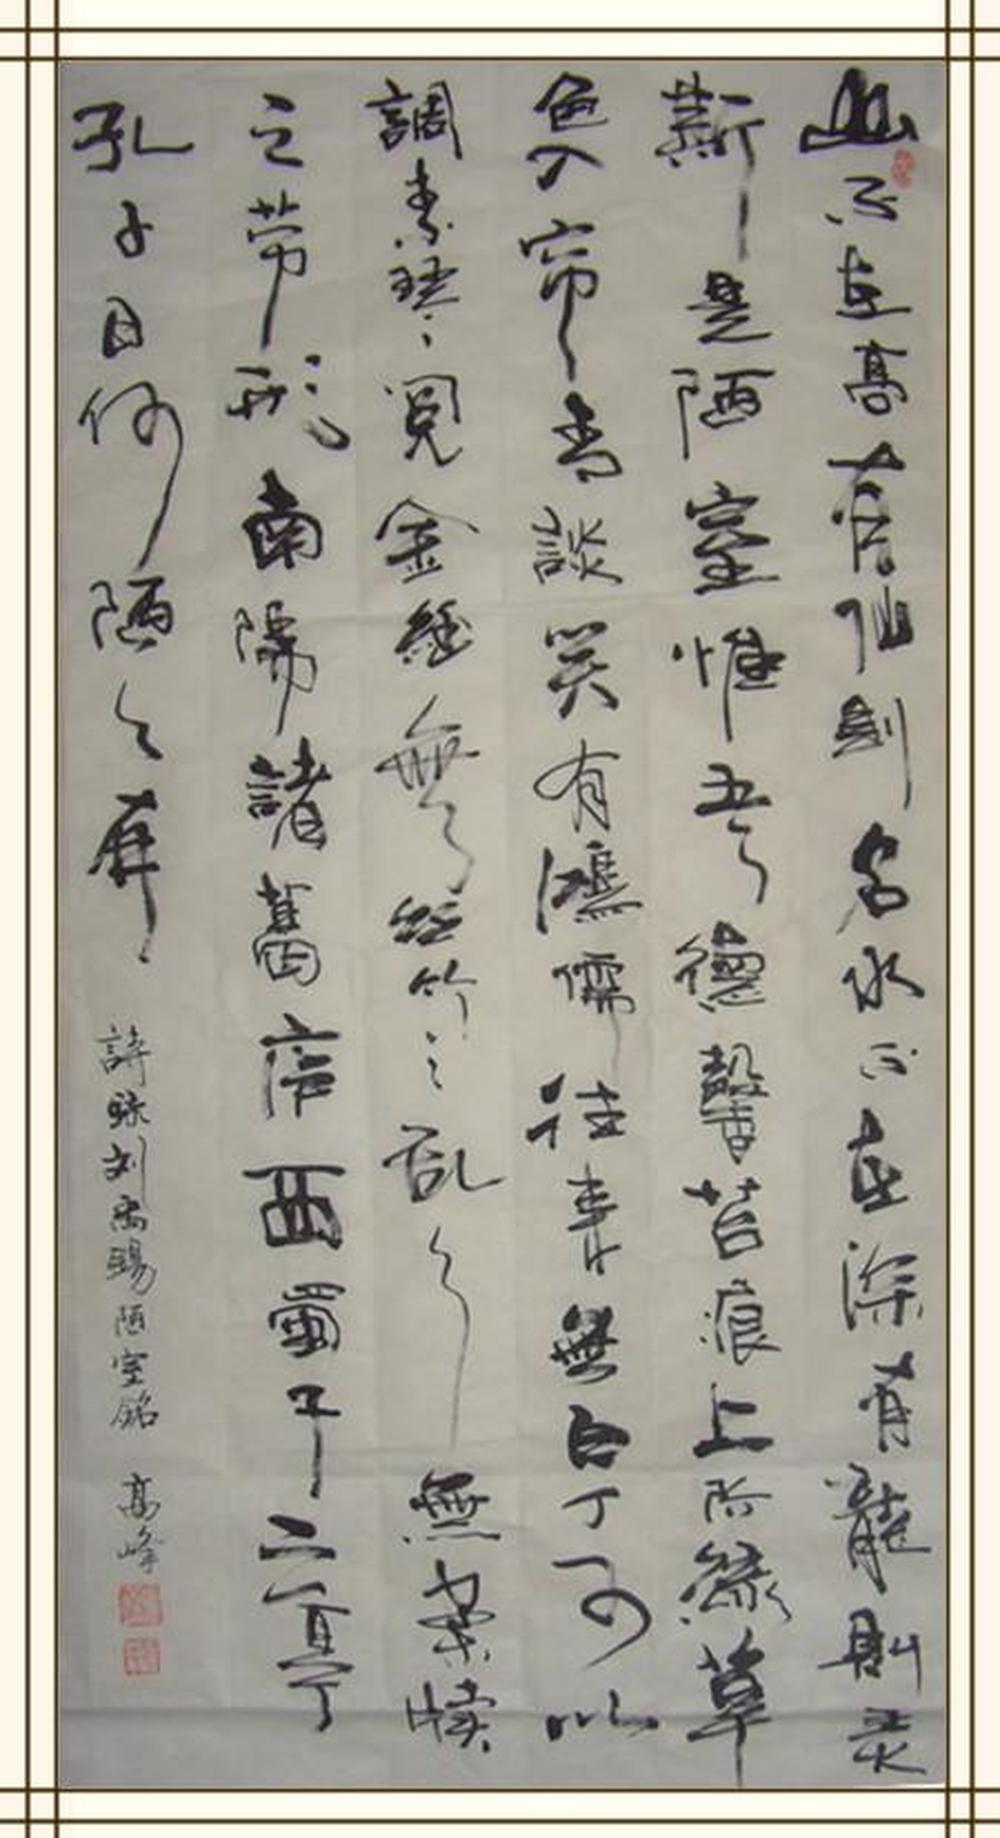 山不在高有仙則名水不在深有龍則灵
斯是陋室惟吾德馨苔痕上阶綠草
色入帘青談笑有鴻儒往来無白丁可以
調素琴閱金經無丝竹之乱之無案牘
之劳形南陽諸葛庐西蜀子云亭
孔子曰何陋之有
刘禹錫陋室銘 高峰